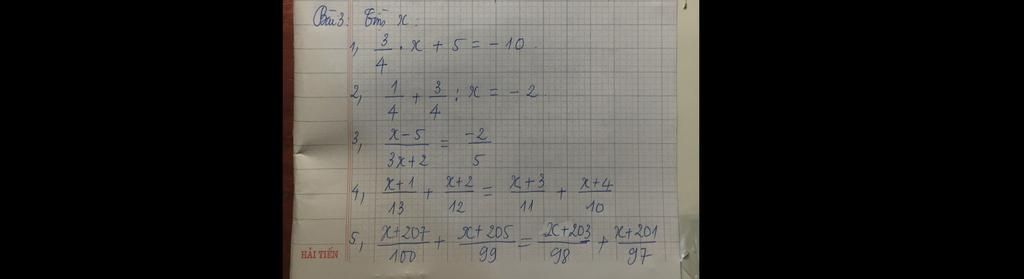 Bài 3: Tìm x:
1, 3/4 . x + 5 = -10.
2, 1/4 + 3/4 : x = -2.
3, (x-5)/(3x+2) = -2/5
4, (x+1)/13 + (x+2)/12 = (x+3)/11 + (x+4)/10
5, (x+207)/100 + (x+205)/99 = (x+203)/98 + (x+201)/97
HẢI TIẾN